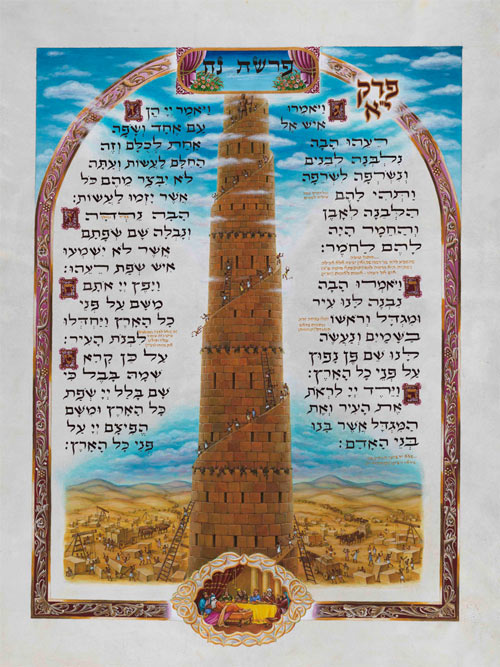 פרשת נח
פרק
י"א
ויאמרו
איש אל
רעהו הבה
נלבנה לבנים
ונשרפה לשרפה
ותהי להם
הלבנה לאבן
והחמר היה
להם לחמר:
ויאמרו הבה
נבנה לנו עיר
ומגדל וראשו
בשמים ונעשה
לנו שם פן נפוץ
על פני כל הארץ:
וירד יי לראת
את העיר ואת
המגדל אשר בנו
בני האדם:
ויאמר יי הן
עם אחד ושפה
אחת לכלם וזה
החלם לעשות ועתה
לא יבצר מהם כל
אשר יזמו לעשות:
הבה נרדה
ונבלה שם שפתם
אשר לא ישמעו
איש שפת רעהו:
ויפץ יי אתם
משם על פני
כל הארץ ויחדלו
לבנת העיר:
על כן קרא
שמה בבל כי
שם בלל יי שפת
כל הארץ ומשם
הפיצם יי על
פני כל הארץ: